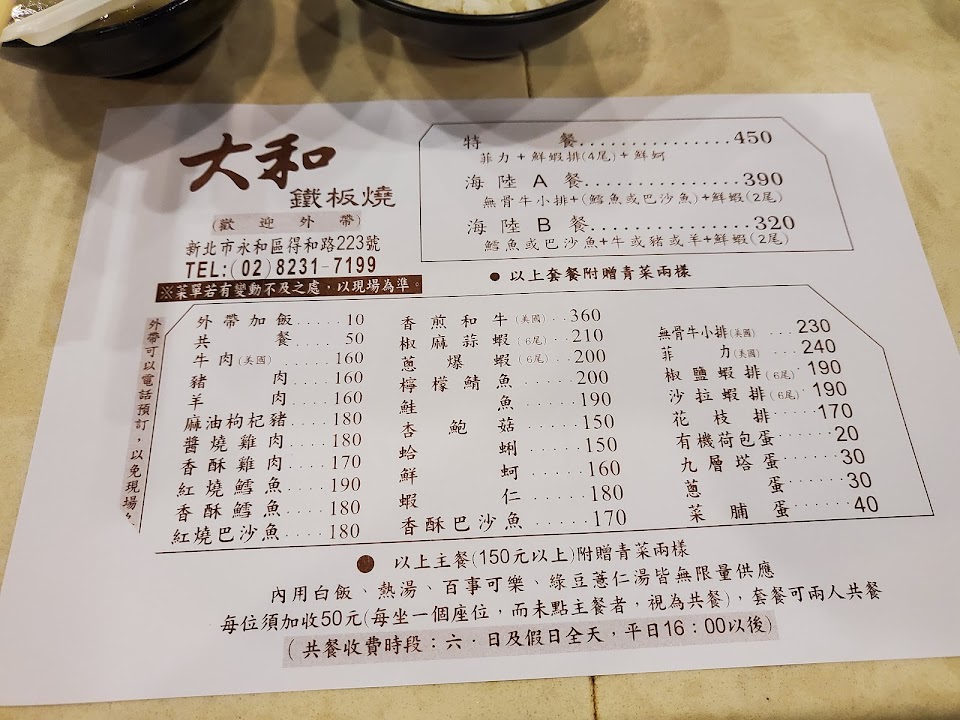 大和
鐵板燒
(歡迎外帶)
新北市永和區得和路223號
TEL:(02)8231-7199
※菜單若有變動不及之處，以現場為準。
特餐...............450
菲力+鮮蝦排(4尾)+鮮蚵
海陸A餐...............390
無骨牛小排+(鱈魚或巴沙魚)+鮮蝦(2尾)
海陸B餐...............320
鱈魚或巴沙魚+牛或豬或羊+鮮蝦(2尾)
●以上套餐附贈青菜兩樣
外帶可以電話預訂，以免現場
外帶加飯.....10
共餐.....50
牛肉(美國)....160
豬肉....160
羊肉....160
麻油枸杞豬....180
醬燒雞肉....180
香酥雞肉....170
紅燒鱈魚....190
香酥鱈魚....180
紅燒巴沙魚....180
香煎和牛(美國)...360
椒麻蒜蝦(6尾)...210
蔥爆蝦(6尾)...200
檸檬鯖魚.....200
鮭魚.....190
杏鮑菇.....150
蛤蜊.....150
鮮蚵.....160
蝦仁.....180
香酥巴沙魚......170
無骨牛小排(美國)...230
菲力(美國)....240
椒鹽蝦排(6尾)..190
沙拉蝦排(6尾)..190
花枝排.....170
有機荷包蛋.....20
九層塔蛋.....30
蔥蛋.....30
菜脯蛋.....40
●以上主餐(150元以上)附贈青菜兩樣
內用白飯、熱湯、百事可樂、綠豆薏仁湯皆無限量供應
每位須加收50元(每坐一個座位，而未點主餐者，視為共餐)，套餐可兩人共餐
(共餐收費時段：六．日及假日全天，平日16：00以後)